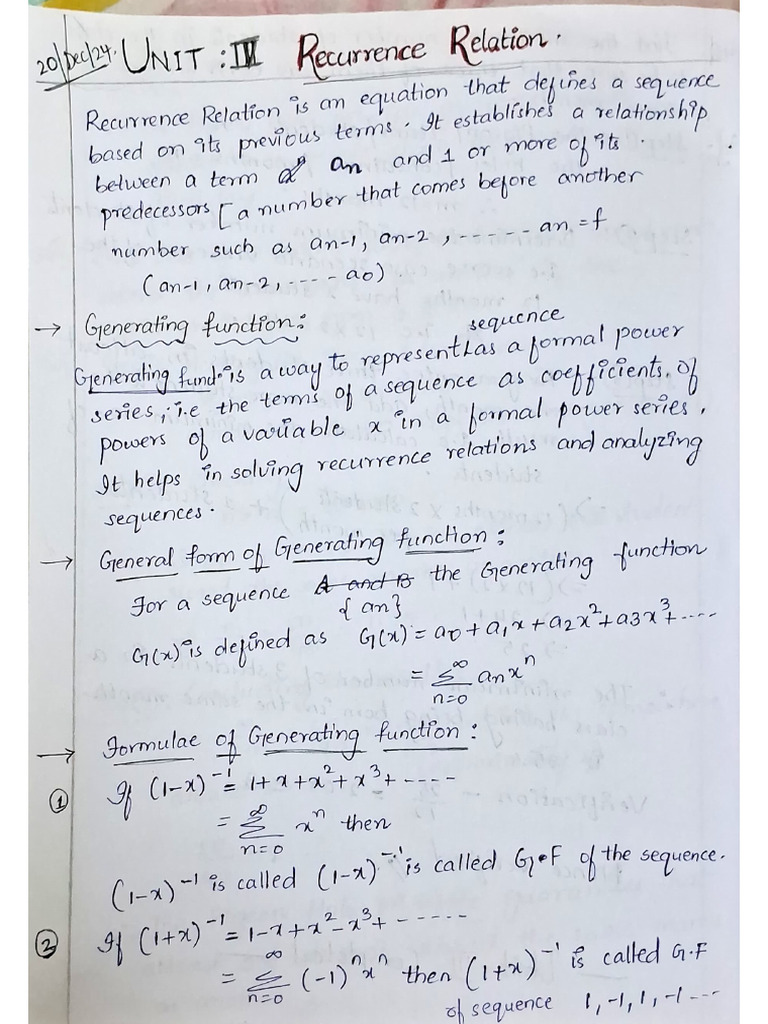 20/Dec/24. UNIT : IV Recurrence Relation.
Recurrence Relation is an equation that defines a sequence
based on its previous terms. It establishes a relationship
between a term an and 1 or more of its.
predecessors [a number that comes before another
number such as an-1, an-2, ------ an = f
(an-1, an-2, ---- a0)
→ Generating function:
sequence
Generating fund. is a way to represent as a formal power
series, i.e the terms of a sequence as coefficients. of
powers of a variable x in a formal power series.
It helps in solving recurrence relations and analyzing
sequences.
→ General form of Generating function:
For a sequence A and B the Generating function
{an}
G(x) is defined as G(x) = a0 + a1x + a2x² + a3x³ + ----
= ∑_{n=0}^{∞} anxⁿ
→ Formulae of Generating function:
① If (1-x)⁻¹ = 1 + x + x² + x³ + ----
= ∑_{n=0}^{∞} xⁿ then
(1-x)⁻¹ is called (1-x)⁻¹ is called G.F of the sequence.
② If (1+x)⁻¹ = 1 - x + x² - x³ + ------
= ∑_{n=0}^{∞} (-1)ⁿxⁿ then (1+x)⁻¹ is called G.F
of sequence 1, -1, 1, -1 ---